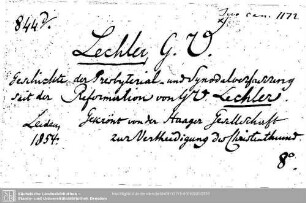 844 d.
Jus can. 1172
Lechler, G. V.
Geschichte der Presbyterial- und Synodalverfassung
seit der Reformation von G V Lechler.
Leiden, Gekrönt von der Haager Gesellschaft
1854. zur Vertheidigung des Christenthums
8°.
Staats- und Universitätsbibliothek Dresden